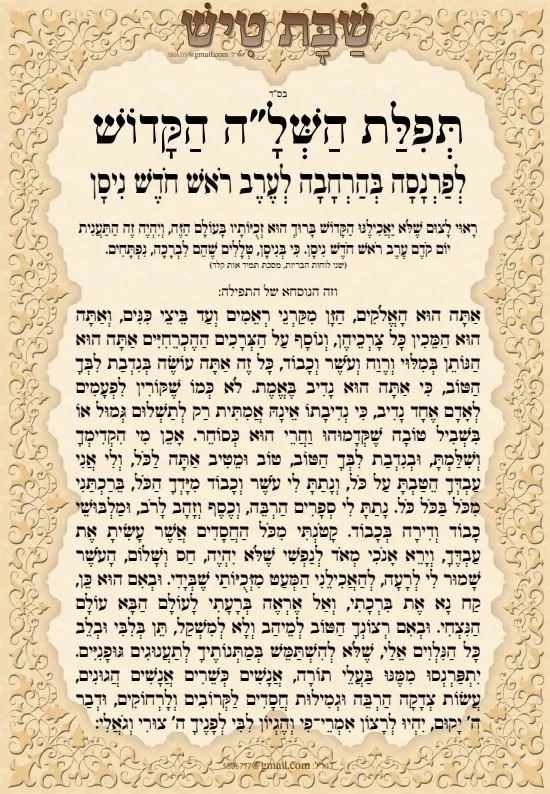 שַׁבָּת טִישׁ
דוא"ל: 5806777@gmail.com
בס"ד
תְּפִלַּת הַשְּׁלָ"ה הַקָּדוֹשׁ
לְפַרְנָסָה בְּהַרְחָבָה לְעֶרֶב רֹאשׁ חֹדֶשׁ נִיסָן
רָאוּי לָצוּם שֶׁלֹּא יַאֲכִילֶנּוּ הַקָּדוֹשׁ בָּרוּךְ הוּא זְכֻיּוֹתָיו בָּעוֹלָם הַזֶּה, וְיִהְיֶה זֶה הַתַּעֲנִית
יוֹם קֹדֶם עֶרֶב רֹאשׁ חֹדֶשׁ נִיסָן. כִּי בְּנִיסָן, טְלָלִים שֶׁהֵם לִבְרָכָה, נִפְתָּחִים.
(שני לוחות הבריות, מסכת תמיד אות קלד)
וזה הנוסחא של התפילה:
אַתָּה הוּא הָאֱלֹקִים, הַזָּן מִקַּרְנֵי רְאֵמִים וְעַד בֵּיצֵי כִנִּים, וְאַתָּה
הוּא הַמֵּכִין כָּל צָרְכֵיהֶן, וְנוֹסָף עַל הַצְּרָכִים הַהֶכְרֵחִיִּים אַתָּה הוּא
הַנּוֹתֵן בְּמִלּוּי וְרֶוַח וְעֹשֶׁר וְכָבוֹד, כָּל זֶה אַתָּה עוֹשֶׂה בְּנִדְבַת לִבְּךָ
הַטּוֹב, כִּי אַתָּה הוּא נָדִיב בֶּאֱמֶת. לֹא כְּמוֹ שֶׁקּוֹרִין לִפְעָמִים
לְאָדָם אֶחָד נָדִיב, כִּי נְדִיבָתוֹ אֵינָהּ אֲמִתִּית רַק לְתַשְׁלוּם גְּמוּל אוֹ
בִּשְׁבִיל טוֹבָה שֶׁקְּדָמוּהוּ וַהֲרֵי הוּא כְּסוֹחֵר. אָכֵן מִי הִקְדִּימְךָ
וְשִׁלַּמְתָּ, וּבְנִדְבַת לִבְּךָ הַטּוֹב, טוֹב וּמֵטִיב אַתָּה לַכֹּל, וְלִי אֲנִי
עַבְדְּךָ הֵטַבְתָּ עַל כֹּל, וְנָתַתָּ לִי עֹשֶׁר וְכָבוֹד מִיָּדְךָ הַכֹּל, בֵּרַכְתַּנִי
מִכֹּל בַּכֹּל כֹּל. נָתַתָּ לִי סְפָרִים הַרְבֵּה, וְכֶסֶף וְזָהָב לָרֹב, וּמַלְבּוּשֵׁי
כָבוֹד וְדִירָה בְּכָבוֹד. קָטֹנְתִּי מִכֹּל הַחֲסָדִים אֲשֶׁר עָשִׂיתָ אֶת
עַבְדֶּךָ, וְיָרֵא אָנֹכִי מְאֹד לְנַפְשִׁי שֶׁלֹּא יִהְיֶה, חַס וְשָׁלוֹם, הָעֹשֶׁר
שָׁמוּר לִי לְרָעָה, לְהַאֲכִילֵנִי הַמְּעַט מִזְּכֻיּוֹתַי שֶׁבְּיָדִי. וּבְאִם הוּא כֵּן,
קַח נָא אֶת בִּרְכָתִי, וְאַל אֶרְאֶה בְּרָעָתִי לְעוֹלָם הַבָּא עוֹלָם
הַנִּצְחִי. וּבְאִם רְצוֹנְךָ הַטּוֹב לְמֵיהַב וְלָא לְמִשְׁקַל, תֵּן בְּלִבִּי וּבְלֵב
כָּל הַנִּלְוִים אֵלַי, שֶׁלֹּא לְהִשְׁתַּמֵּשׁ בְּמַתְּנוֹתֶיךָ לְתַעֲנוּגִים גּוּפָנִיִּים.
יִתְפַּרְנְסוּ מִמֶּנּוּ בַּעֲלֵי תוֹרָה, אֲנָשִׁים כְּשֵׁרִים אֲנָשִׁים הֲגוּנִים,
עֲשׂוֹת צְדָקָה הַרְבֵּה וּגְמִילוּת חֲסָדִים לַקְּרוֹבִים וְלָרְחוֹקִים, וּדְבַר
ה' יָקוּם, יִהְיוּ לְרָצוֹן אִמְרֵי־פִי וְהֶגְיוֹן לִבִּי לְפָנֶיךָ ה' צוּרִי וְגֹאֲלִי:
דוא"ל: 5806777@gmail.com